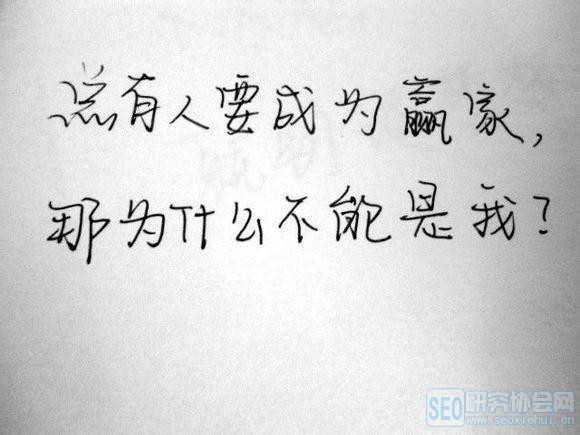 总有人要成为赢家，
那为什么不能是我？
SEO研究协会网
www.seoxiehui.cn